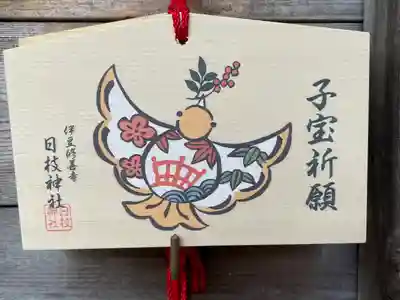 子宝祈願
伊豆修善寺
日枝神社
日枝
神社